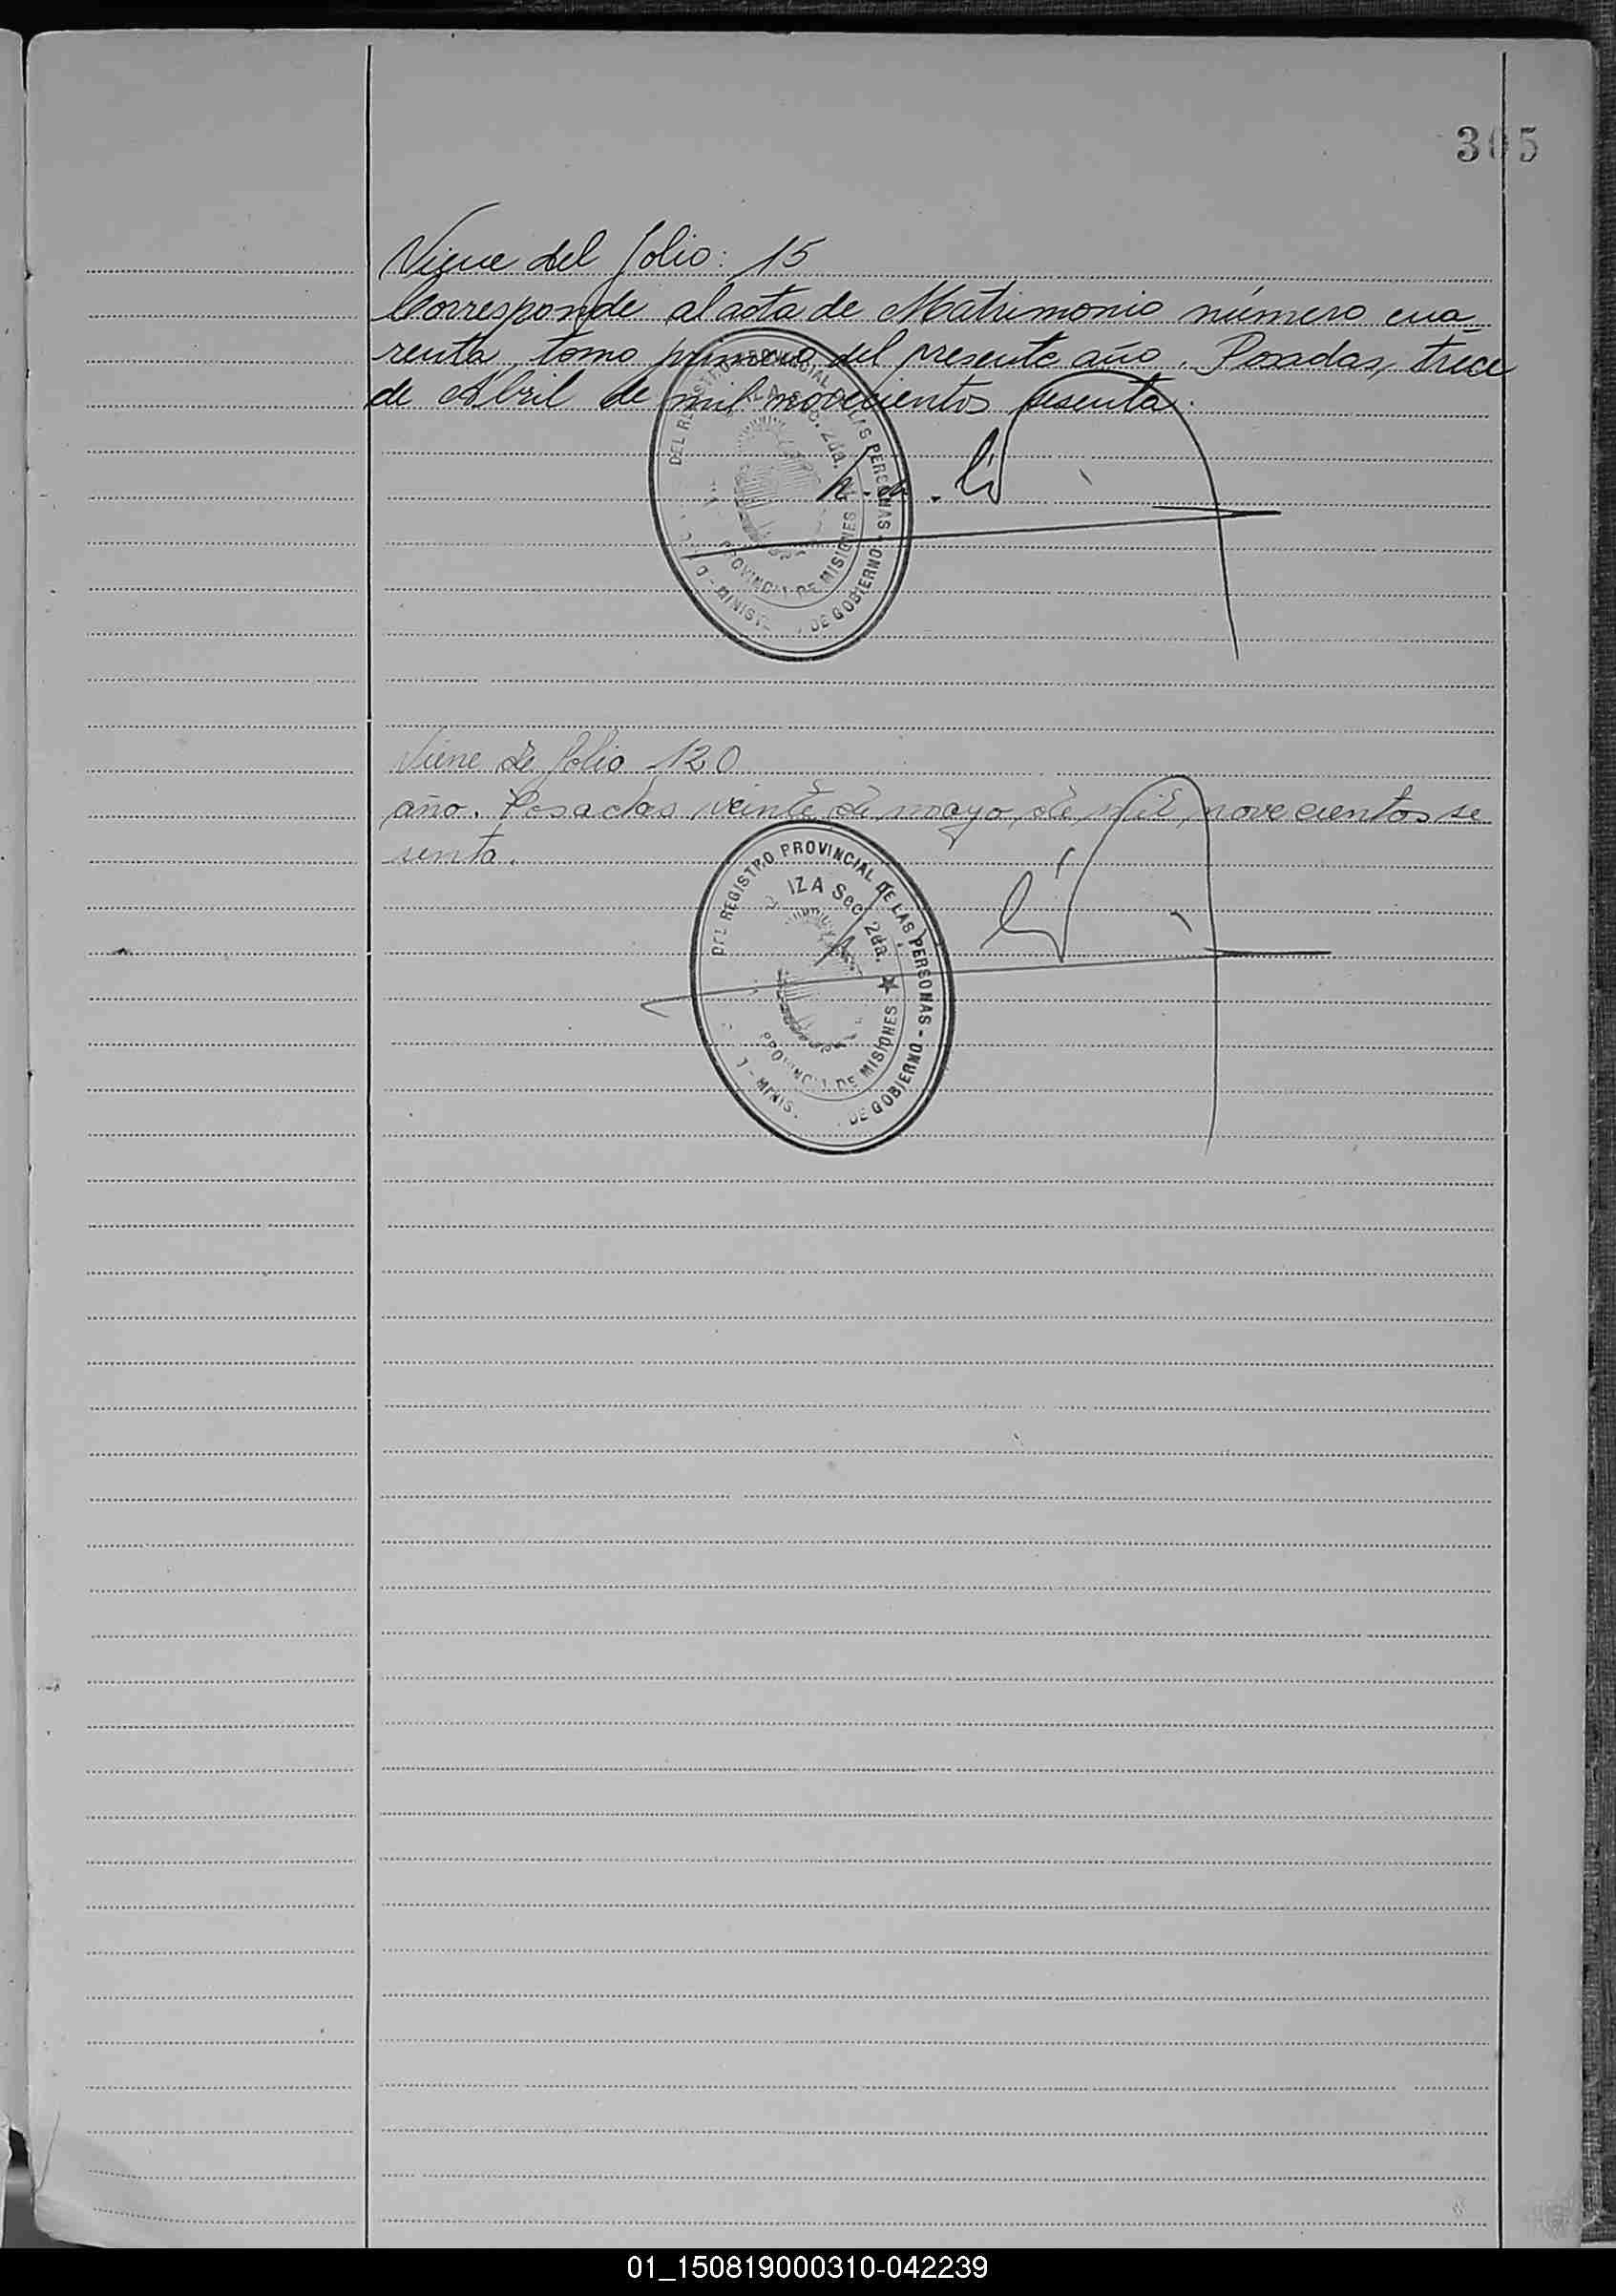 305
Viene del folio: 15
Corresponde al acta de Matrimonio número cua_
renta, tomo primero del presente año. Posadas, trece
de Abril de mil novecientos sesenta.
DEL REGISTRO PROVINCIAL DE LAS PERSONAS - DE GOBIERNO
Sec. 2da.
PROVINCIA DE MISIONES
Viene de folio 120
año. Posadas veinte de mayo, de mil novecientos se
senta.
DEL REGISTRO PROVINCIAL DE LAS PERSONAS - DE GOBIERNO
IZA Sec. 2da.
PROVINCIA DE MISIONES
01_150819000310-042239